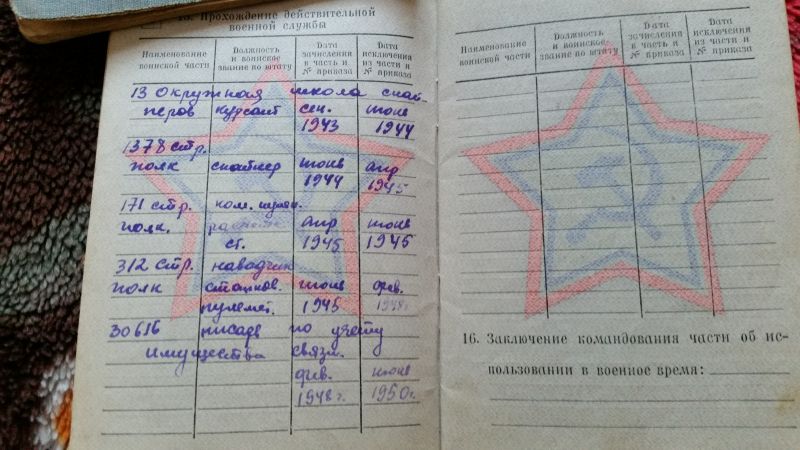 15. Прохождение действительной
военной службы
Наименование воинской части
Должность и воинское звание по штату
Дата зачисления в часть и № приказа
Дата исключения из части и № приказа
13 Окружная школа снай-
перов курсант сен. июнь
1943 1944
1378 стр.
полк снайпер июнь апр
1944 1945
171 стр. ком. пулем.
полк. расчета апр июнь
ст. 1945 1945
312 стр. наводчик
полк станков. июнь фев.
пулемет. 1945 1948г.
30616 писарь по учету
имущества связи.
фев. июнь
1948г. 1950г.
Наименование воинской части
Должность и воинское звание по штату
Дата зачисления в часть и № приказа
Дата исключения из части и № приказа
16. Заключение командования части об ис-
пользовании в военное время: